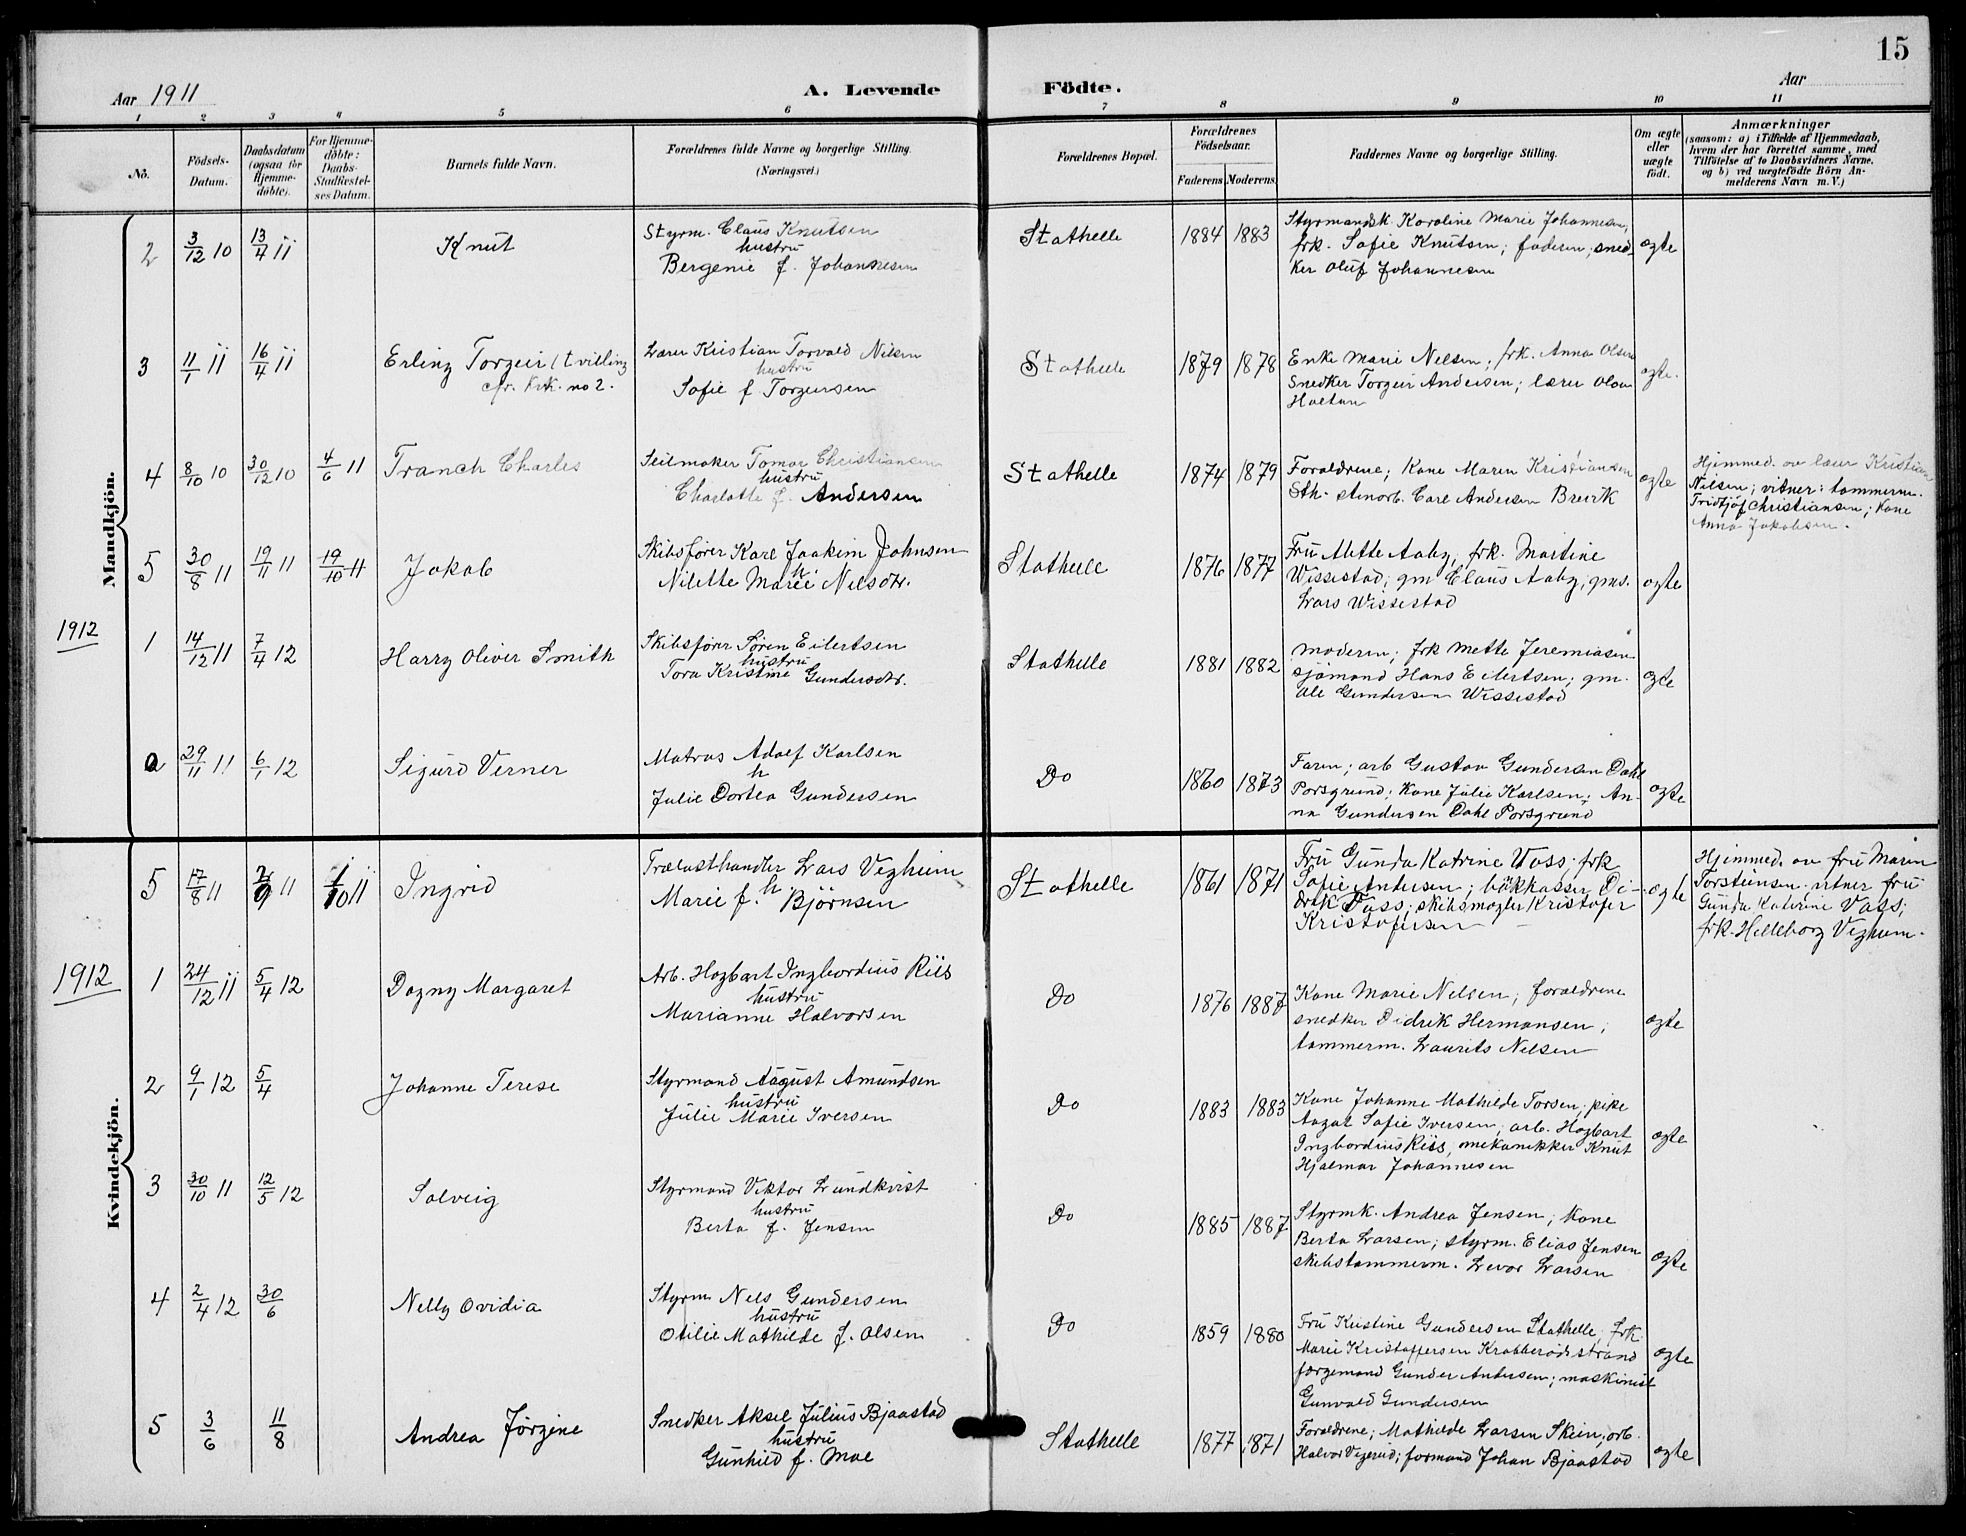 15
Aar 1911 A. Levende Födte. Aar
1 2 3 4 5 6 7 8 9 10 11
No. Födsels-Datum. Daabsdatum (ogsaa for Hjemmedöbte). For Hjemmedöbte: Daabs-Stadfæstelses Datum. Barnets fulde Navn. Forældrenes fulde Navne og borgerlige Stilling. (Næringsvei.) Forældrenes Bopæl. Forældrenes Födselsaar. Faderens Moderens Faddernes Navne og borgerlige Stilling. Om ægte eller uægte födt. Anmærkninger (saasom: a) i Tilfælde af Hjemmedaab, hvem der har forrettet samme, med Tilföielse af to Daabsvidners Navne, og b) ved uægtefödte Börn Anmelderens Navn m. V.)
Mandkjön.
2 3/12 10 13/4 11 Knut Styrm. Claus Knutsen Stathelle 1884 1883 Styrmandsk. Karoline Marie Johannesen,
hustru frk. Sofie Knutsen; faderen; sned- ægte
Bergenie f. Johannesen ker Oluf Johannesen
3 11/1 11 16/4 11 Erling Torgeir (tvilling Lærer Kristian Torvald Nilsen Stathelle 1879 1878 Enke Marie Nelsen; frk. Anna Olsen
cfr. kvk. no 2. hustru Snedker Torgeir Andersen; lærer Olav ægte.
Sofie f Torgeirsen Holtan
4 8/10 10 30/12 10 4/6 11 Tranch Charles Seilmaker Tomar Christiansen Stathelle 1874 1879 Forældrene; Kone Maren Kristiansen ægte Hjemmed. av lærer Kristian
hustru Sth. stenarb. Carl Andersen Brevik Nilsen; vitner: tømmerm.
Charlotte f. Andersen Fridtjöf Christiansen; Kone
Anna Jakobsen.
5 30/8 11 19/11 11 19/10 11 Jakob Skibsfører Karl Joakim Johnsen Stathelle 1876 1877 Fru Mette Aaby, frk. Martine
h. Wissestad; gm Claus Aaby; gms. ægte
Nilette Marie Nilsdtr. Lars Wissestad
1912
1 14/12 11 7/4 12 Harry Oliver Smith Skibsfører Søren Eilertsen Stathelle 1881 1882 Moderen; frk Mette Jeremiasen
hustru sjömand Hans Eilertsen; gm. ægte
Tora Kristine Gundersdtr. Ole Gundersen Wissestad
2 29/11 11 6/1 12 Sigurd Verner Matros Adolf Karlsen Do 1860 1873 Faren; arb Gustav Gundersen Dahl
h Porsgrund; Kone Julie Karlsen; An- ægte
Julie Dortea Gundersen na Gundersen Dahl Porsgrund
Kvindekjön.
5 17/8 11 11 1/10 11 Ingrid Trælasthandler Lars Vegheim Stathelle 1861 1871 Fru Gunda Katrine Vass; frk ægte Hjemmed. av fru Maren
h. Sofie Andersen; bökkasser Di- Torsteinsen. vitner fru
Marie f. Björnsen drik Vass; skibsmægler Kristofer Gunda Katrine Vass;
Kristofersen frk. Helleborg Vegheim.
1912
1 24/12 11 5/4 12 Dagny Margaret Arb. Hagbart Ingbordius Riis Do 1876 1887 Kone Marie Nelsen; forældrene
hustru snedker Didrik Hermansen; ægte
Marianne Halvorsen tømmerm. Laurits Nelsen
2 9/1 12 5/4 Johanne Terese Styrmand August Amundsen Do 1883 1883 Kone Johanne Mathilde Torsen; pike
hustru Aagat Sofie Iversen; arb. Hagbart ægte
Julie Marie Iversen Ingbordius Riis, mekanikker Knut
Hjalmar Johannesen
3 30/10 11 12/5 12 Solveig Styrmand Viktor Lundkvist Do 1885 1887 Styrmk. Andrea Jensen; Kone
hustru Berta Larsen; styrm. Elias Jensen ægte
Berta f. Jensen skibstømmerm. Levor Larsen
4 2/4 12 30/6 Nelly Ovidia Styrm Nels Gundersen Do 1859 1880 Fru Kristine Gundersen Stathelle; frk.
hustru Marie Kristoffersen Krabberödstrand ægte
Otilie Mathilde f. Olsen færgemand Gunder Andersen; maskinist
Gunvald Gundersen
5 3/6 11/8 Andrea Jørgine Snedker Aksel Julius Bjaastad Stathelle 1877 1871 Forældrene; Mathilde Larsen Skien; arb.
hustru Halvor Vegerud; formand Johan Bjaastad ægte
Gunhild f. Moe